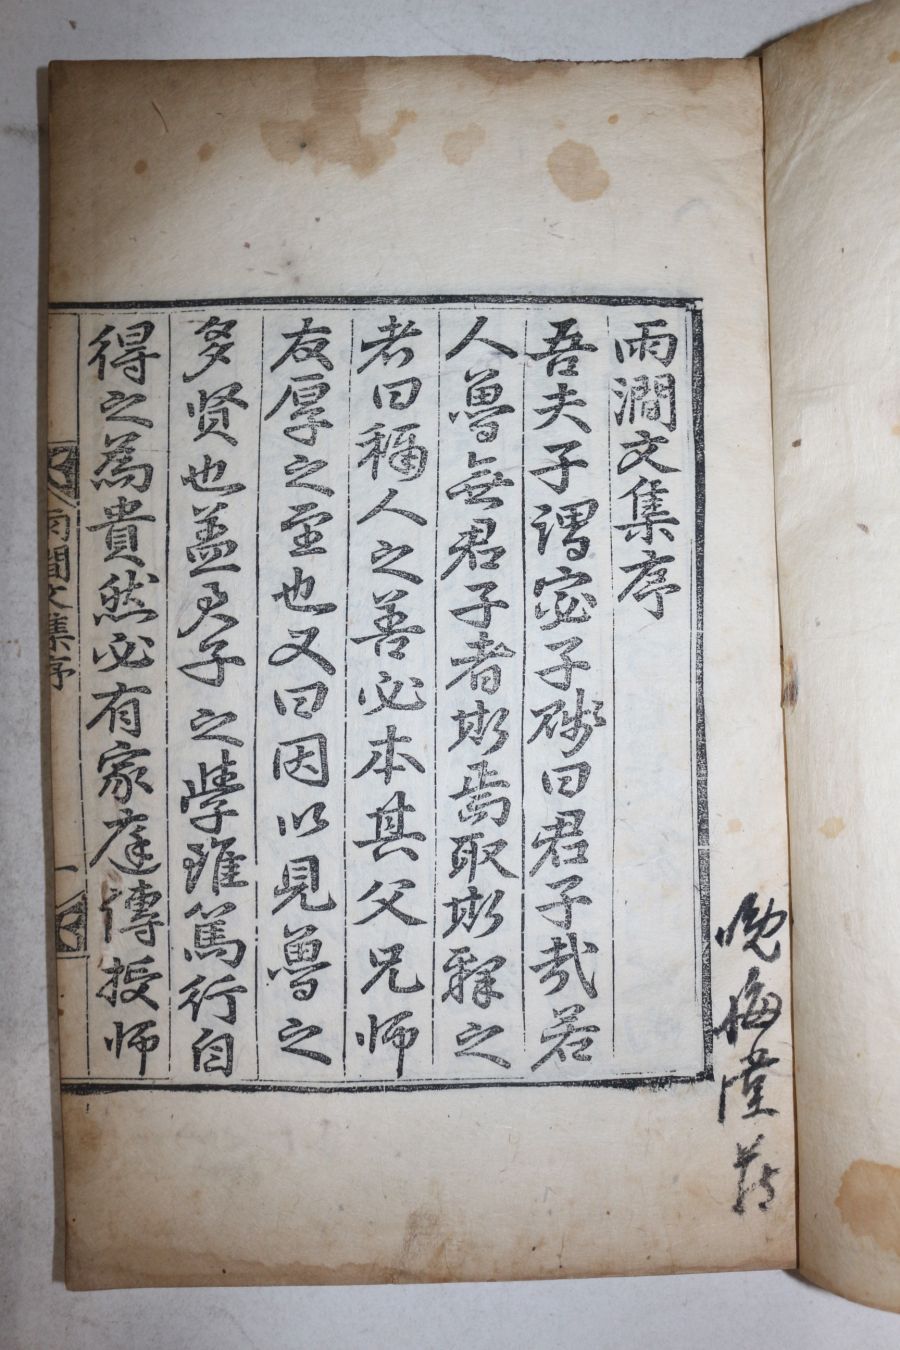 雨澗文集序
吾夫子謂宓子賤曰君子哉若
人魯無君子者斯焉取斯釋之
者曰稱人之善必本其父兄師
友厚之至也又曰因以見魯之
多賢也盖君子之學雖篤行自
得之為貴然必有家庭傳授師
雨澗文集序
一
晩梅堂藏